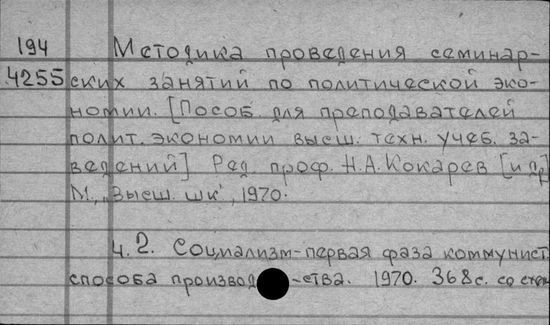 194 Методика проведения семинар-
4255 ских занятий по политической эко-
номии. [Пособ. для преподавателей
полит. экономии высш. техн. учеб. за-
ведений] Ред. проф. Н.А.Кокарев [и др]
М., „Высш. шк", 1970.
Ч.2. Социализм-первая фаза коммунист.
способа производ-ства. 1970. 368с. со схем